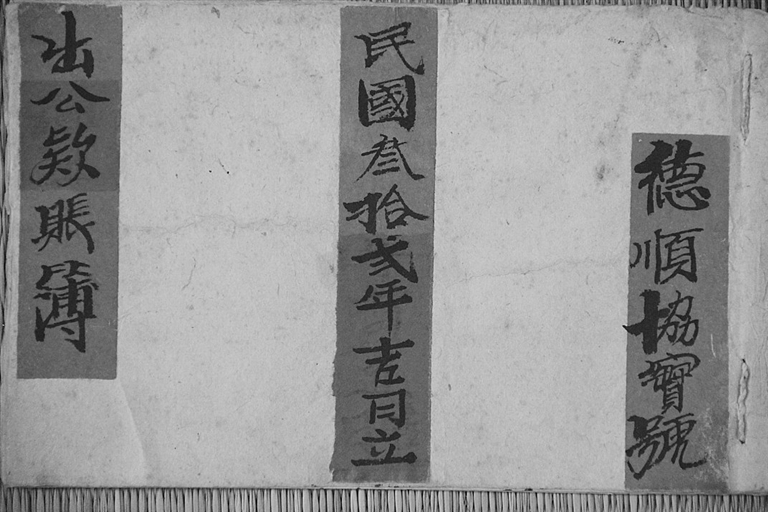 德順協寶號
民國叁拾弍年吉日立
出公欵賬簿